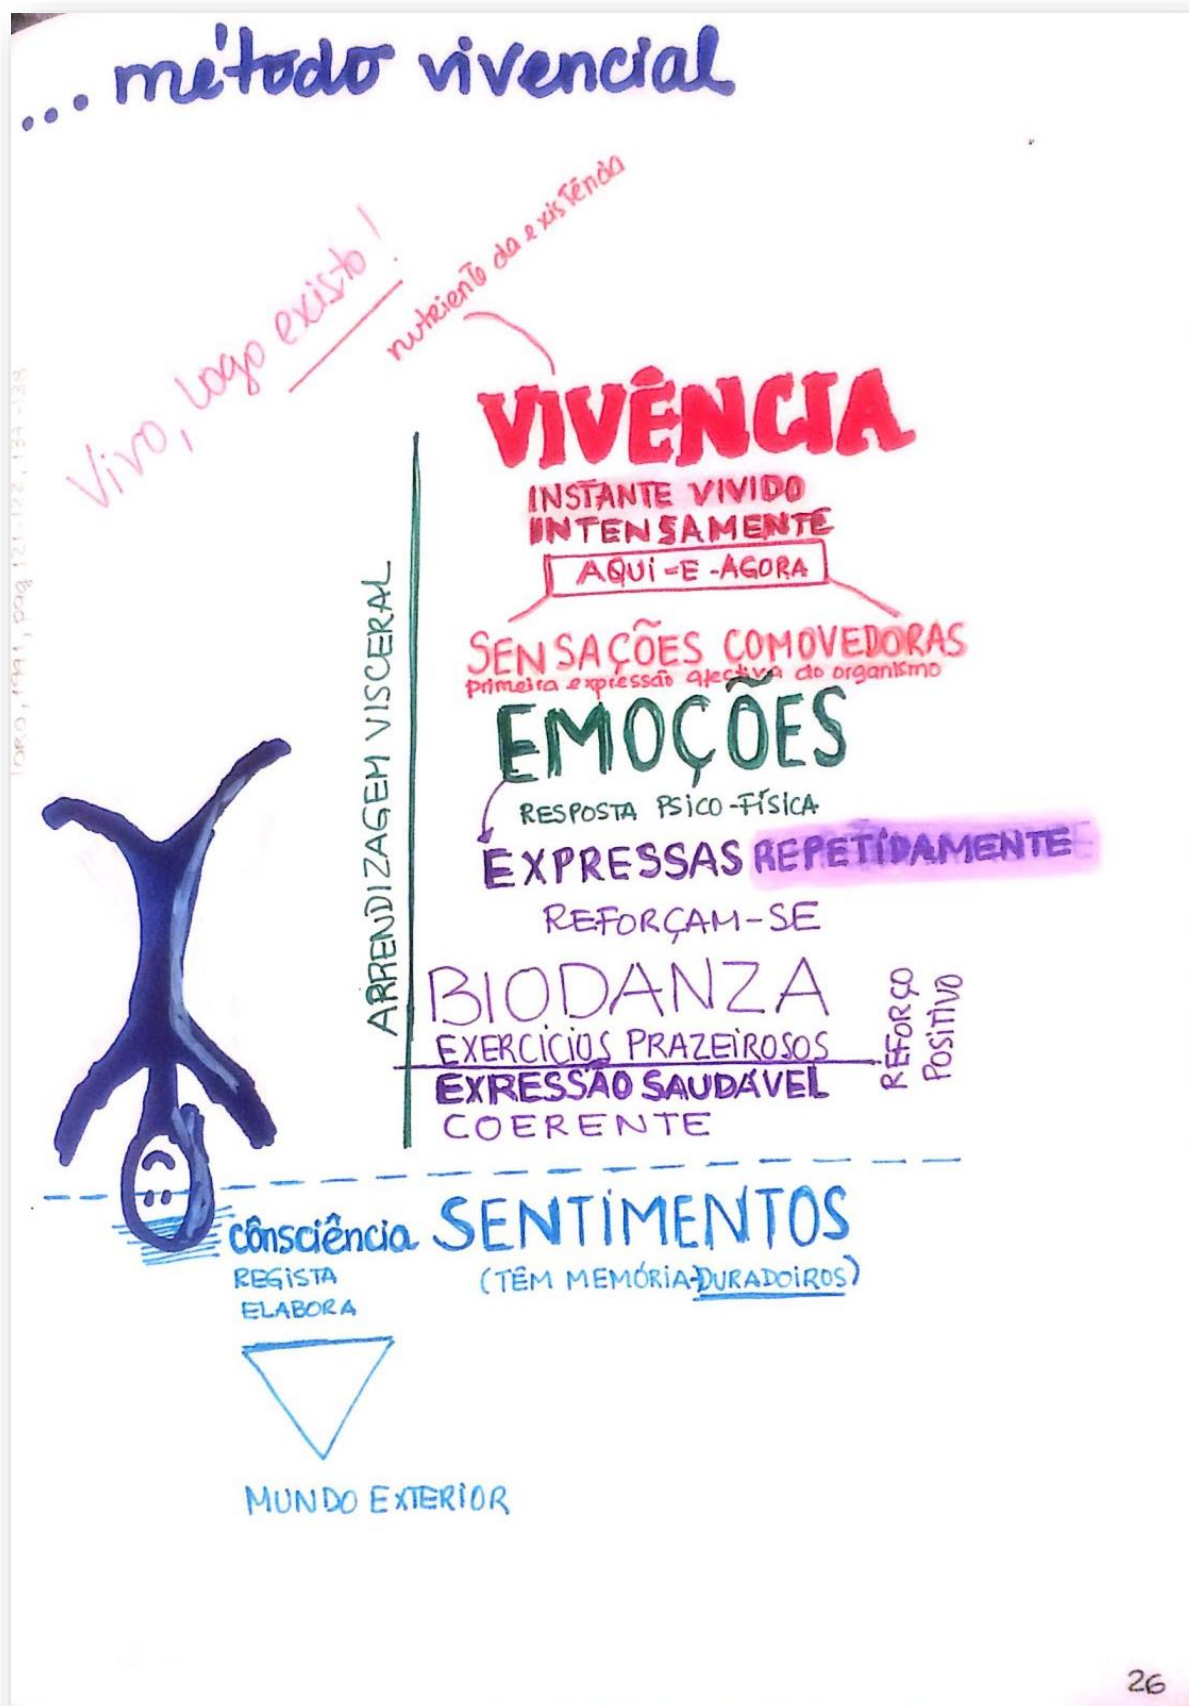 ... método vivencial
Vivo, logo existo!
nutriento da existência
TORO, 1991, pag 121-122, 137-139
VIVÊNCIA
INSTANTE VIVIDO
INTENSAMENTE
AQUI-E-AGORA
SENSAÇÕES COMOVEDORAS
primeira expressão afectiva do organismo
EMOÇÕES
RESPOSTA PSICO-FÍSICA
EXPRESSAS REPETIDAMENTE
REFORÇAM-SE
ARRENDIZAGEM VISCERAL
BIODANZA
EXERCÍCIOS PRAZEIROSOS
EXRESSÃO SAUDÁVEL
COERENTE
REFORÇO
POSITIVO
cônsciência SENTIMENTOS
REGISTA
(TÊM MEMÓRIA-DURADOIROS)
ELABORA
MUNDO EXTERIOR
26